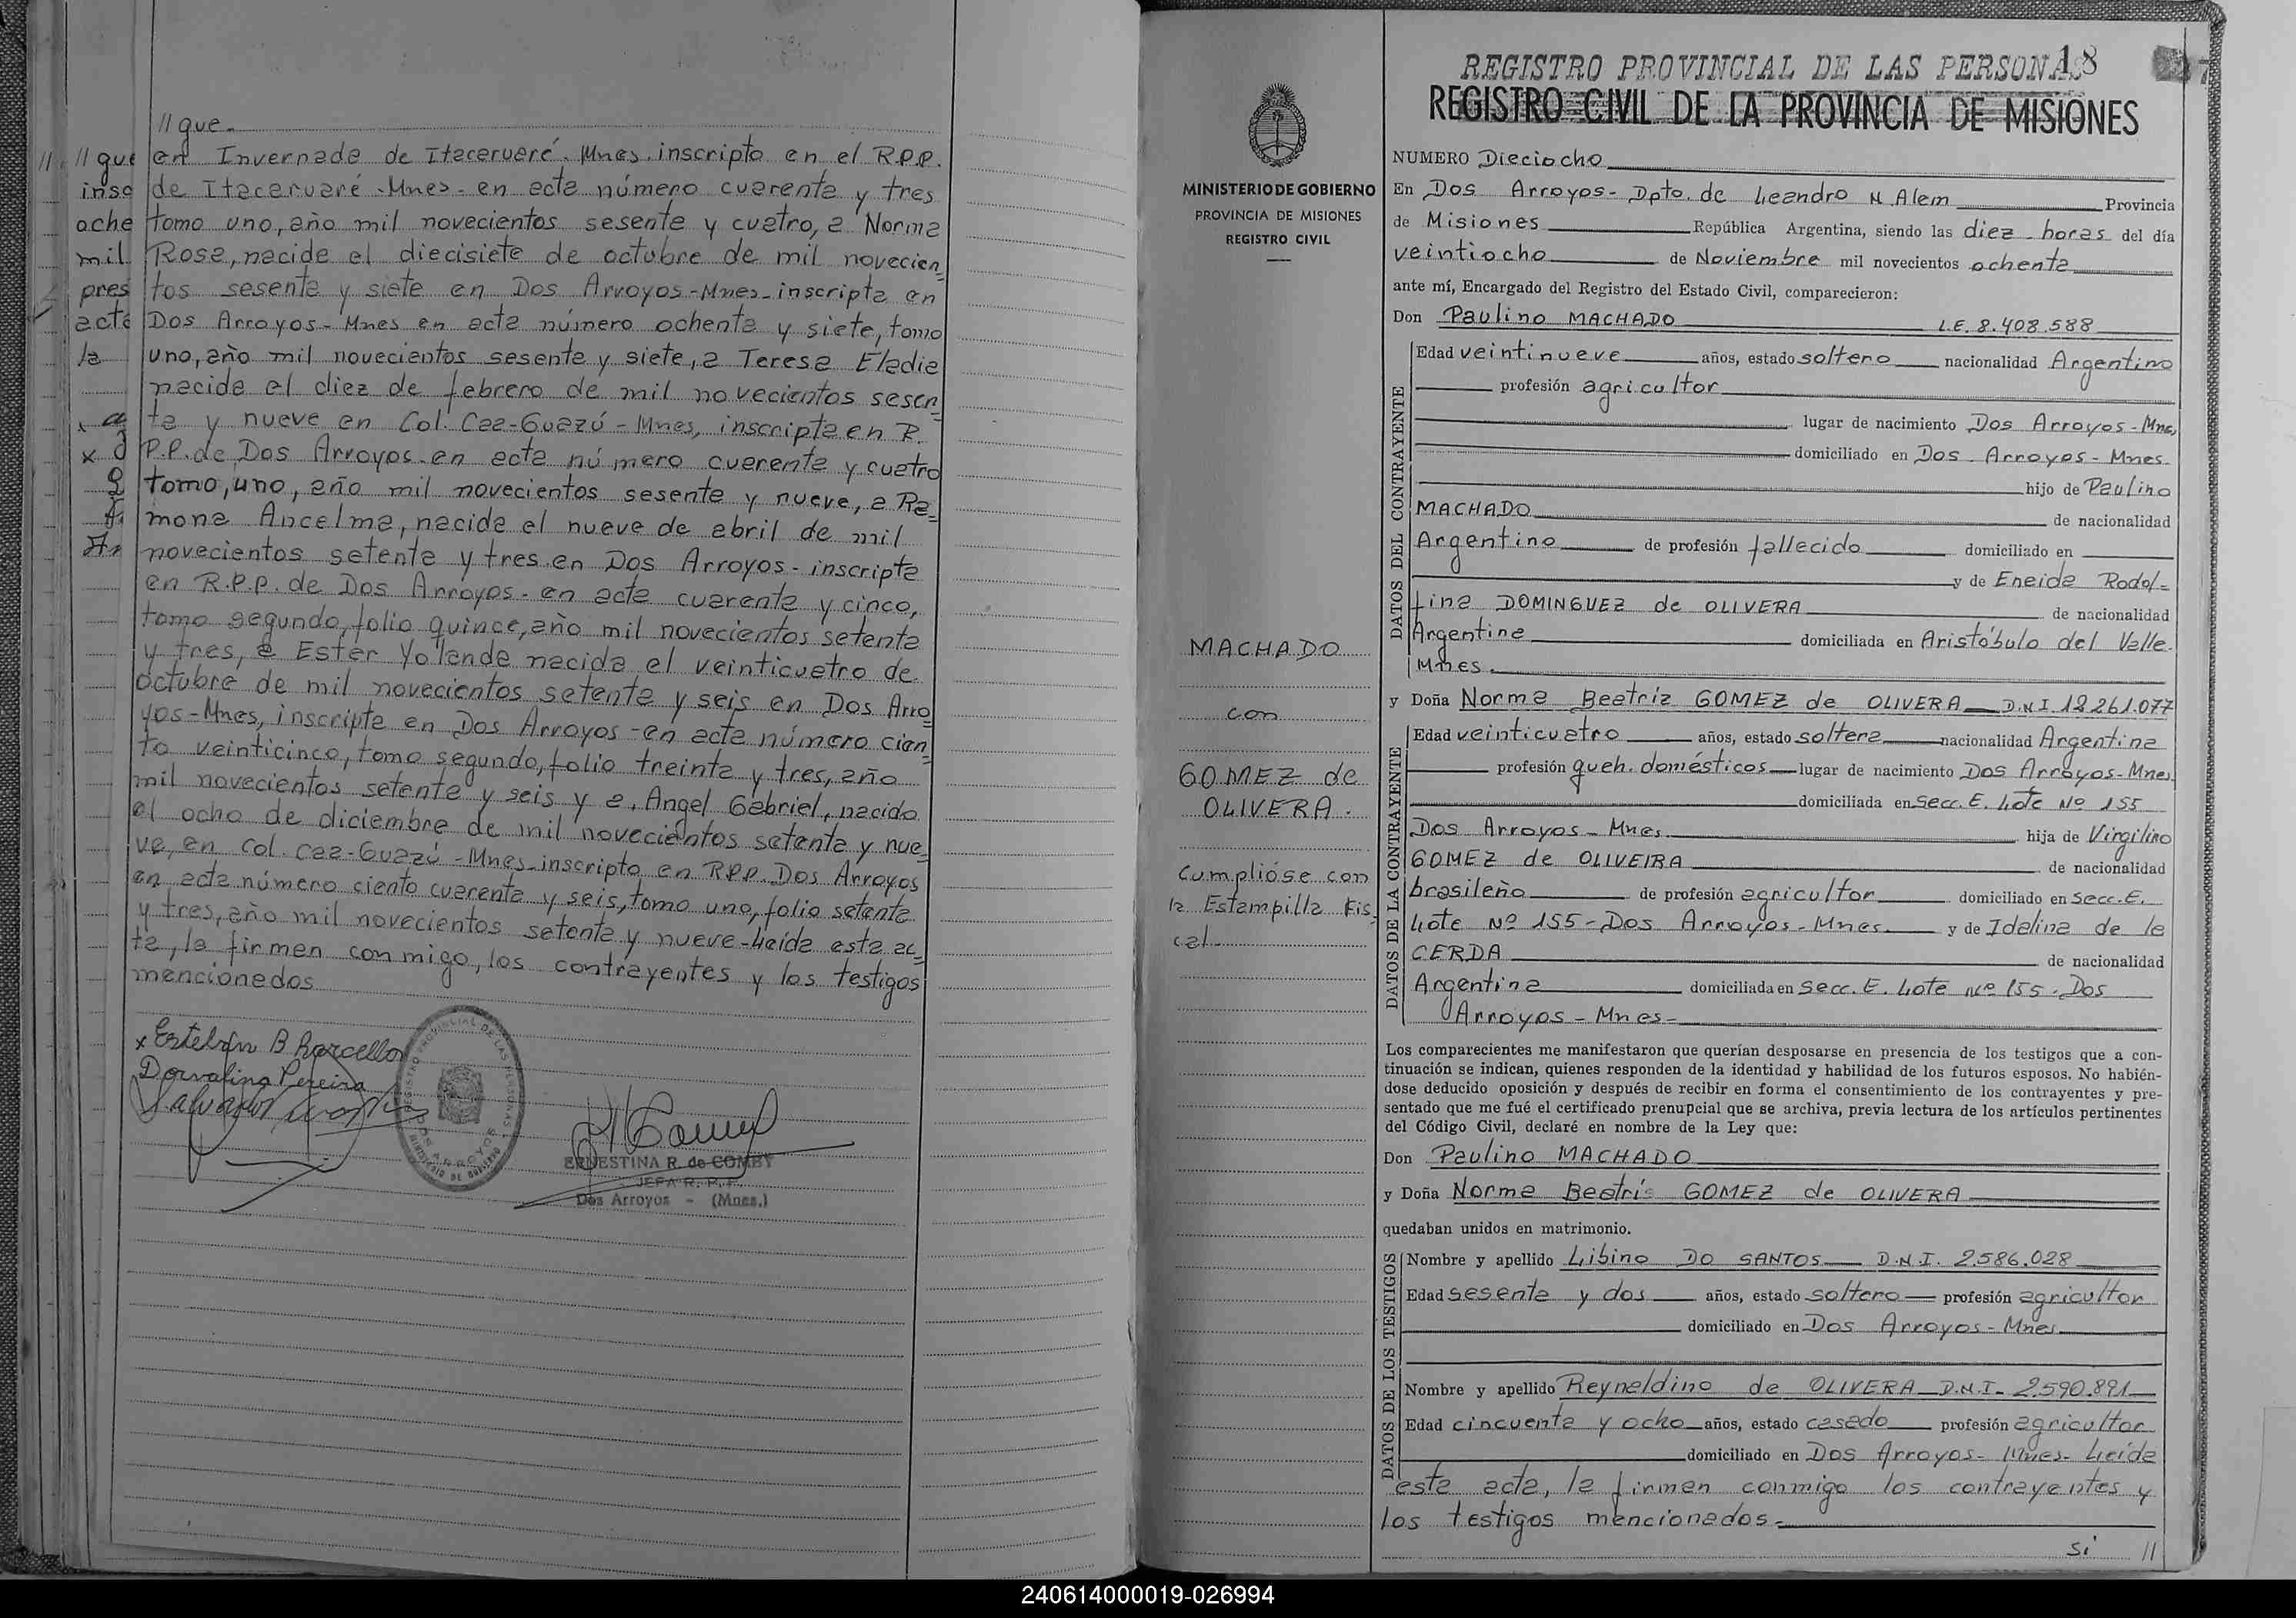 // que
en Invernada de Itacaruaré. Mnes. inscripto en el R.P.P.
de Itacaruaré-Mnes- en acta número cuarenta y tres
tomo uno, año mil novecientos sesenta y cuatro, a Norma
Rosa, nacida el diecisiete de octubre de mil novecien
tos sesenta y siete en Dos Arroyos-Mnes-inscripta en
Dos Arroyos-Mnes en acta número ochenta y siete, tomo
uno, año mil novecientos sesenta y siete, a Teresa Eladia
nacida el diez de febrero de mil novecientos sesen
ta y nueve en Col. Caa-Guazú-Mnes, inscripta en R.
P.P. de Dos Arroyos en acta número cuarenta y cuatro
tomo, uno, año mil novecientos sesenta y nueve, a Ra=
mona Ancelma, nacida el nueve de abril de mil
novecientos setenta y tres en Dos Arroyos-inscripta
en R.P.P. de Dos Arroyos-en acta cuarenta y cinco,
tomo segundo, folio quince, año mil novecientos setenta
y tres, a Ester Yolanda nacida el veinticuatro de
octubre de mil novecientos setenta y seis en Dos Arro
yos-Mnes, inscripta en Dos Arroyos-en acta número cien
to veinticinco, tomo segundo, folio treinta y tres, año
mil novecientos setenta y seis y a, Angel Gabriel, nacido
el ocho de diciembre de mil novecientos setenta y nue
ve, en Col. Caa-Guazú-Mnes-inscripto en R.P.P. Dos Arroyos
en acta número ciento cuarenta y seis, tomo uno, folio setenta
y tres, año mil novecientos setenta y nueve-Leída esta ac
ta, la firman conmigo, los contrayentes y los testigos
mencionados
Dorvalina Pereira
ERNESTINA R. de COMBY
JEFA R. P. P.
Dos Arroyos - (Mnes.)
// que
insc
oche
mil
pres
acta
la
MINISTERIO DE GOBIERNO
PROVINCIA DE MISIONES
REGISTRO CIVIL
MACHADO
con
GOMEZ de
OLIVERA.
Cumplióse con
la Estampilla Fis
cal
REGISTRO PROVINCIAL DE LAS PERSONAS
18
REGISTRO CIVIL DE LA PROVINCIA DE MISIONES
NUMERO Dieciocho
En Dos Arroyos- Dpto. de Leandro N. Alem Provincia
de Misiones República Argentina, siendo las diez horas del día
veintiocho de Noviembre mil novecientos ochenta
ante mí, Encargado del Registro del Estado Civil, comparecieron:
Don Paulino MACHADO L.E. 8.408.588
DATOS DEL CONTRAYENTE
Edad veintinueve años, estado soltero nacionalidad Argentino
profesión agricultor
lugar de nacimiento Dos Arroyos-Mnes
domiciliado en Dos Arroyos-Mnes.
hijo de Paulino
MACHADO de nacionalidad
Argentino de profesión fallecido domiciliado en
y de Eneida Rodol=
fina DOMINGUEZ de OLIVERA de nacionalidad
Argentina domiciliada en Aristóbulo del Valle.
Mnes.
y Doña Norma Beatriz GOMEZ de OLIVERA D.N.I 12.261.077
DATOS DE LA CONTRAYENTE
Edad veinticuatro años, estado soltera nacionalidad Argentina
profesión queh. domésticos lugar de nacimiento Dos Arroyos-Mnes
domiciliada en Secc. E. Lote Nº 155
Dos Arroyos-Mnes. hija de Virgilino
GOMEZ de OLIVEIRA de nacionalidad
brasileño de profesión agricultor domiciliado en Secc. E.
Lote Nº 155-Dos Arroyos-Mnes. y de Idalina de la
CERDA de nacionalidad
Argentina domiciliada en Secc. E. Lote Nº 155. Dos
Arroyos-Mnes-
Los comparecientes me manifestaron que querían desposarse en presencia de los testigos que a con-
tinuación se indican, quienes responden de la identidad y habilidad de los futuros esposos. No habién-
dose deducido oposición y después de recibir en forma el consentimiento de los contrayentes y pre-
sentado que me fué el certificado prenupcial que se archiva, previa lectura de los artículos pertinentes
del Código Civil, declaré en nombre de la Ley que:
Don Paulino MACHADO
y Doña Norma Beatris GOMEZ de OLIVERA
quedaban unidos en matrimonio.
DATOS DE LOS TESTIGOS
Nombre y apellido Libino DO SANTOS D.N.I. 2.586.028
Edad sesenta y dos años, estado soltero profesión agricultor
domiciliado en Dos Arroyos-Mnes
Nombre y apellido Reynaldino de OLIVERA D.N.I- 2.590.891
Edad cincuenta y ocho años, estado casado profesión agricultor
domiciliado en Dos Arroyos-Mnes-Leída
esta acta, la firman conmigo los contrayentes y
los testigos mencionados-
Si //
240614000019-026994